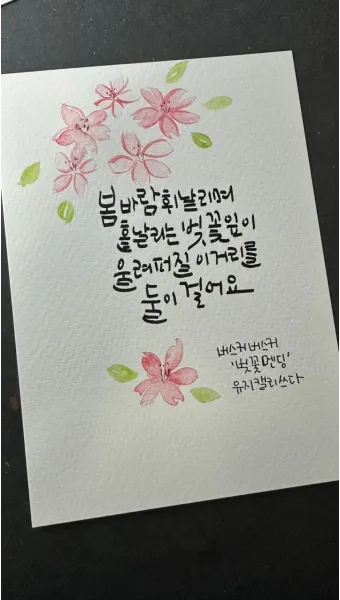 봄바람 휘날리며
흩날리는 벚꽃잎이
울려퍼질 이 거리를
둘이 걸어요
버스커버스커
'벚꽃엔딩'
유지캘리쓰다